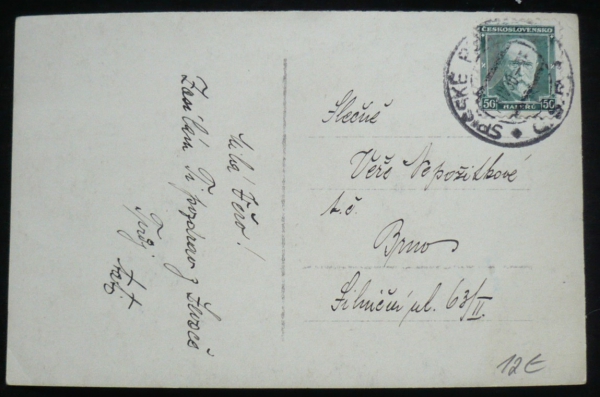 Milá Věro!
Zasílám Ti pozdrav z
Tvůj
ČESKOSLOVENSKO
50 HALÉŘŮ 50
SPIŠSKÉ
Slečně
Věře Nepožitkové
t.č.
Brno
Silniční ul. 63/II.
12€